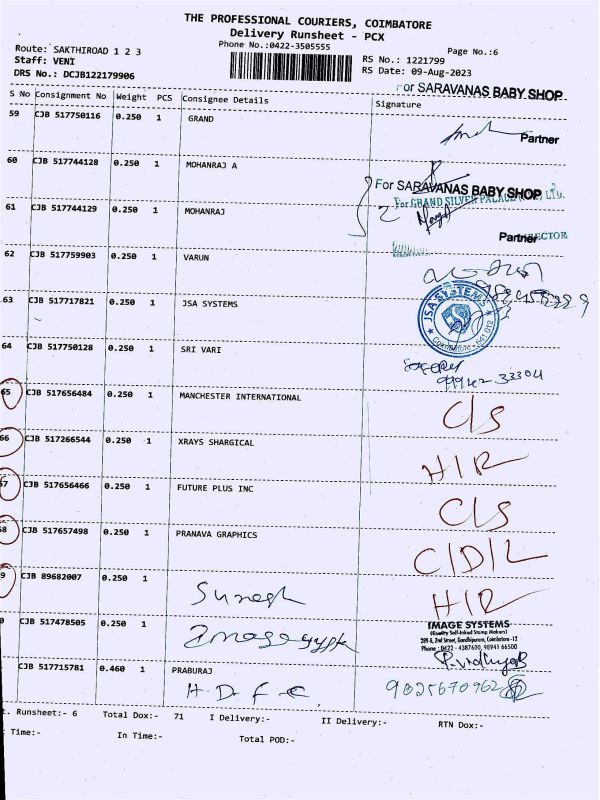 THE PROFESSIONAL COURIERS, COIMBATORE
Delivery Runsheet - PCX
Phone No.:0422-3505555
Page No.:6
Route: SAKTHIROAD 1 2 3
Staff: VENI
DRS No.: DCJB122179906
RS No.: 1221799
RS Date: 09-Aug-2023
For SARAVANAS BABY SHOP
S No Consignment No Weight PCS Consignee Details Signature
59 CJB 517750116 0.250 1 GRAND
Partner
60 CJB 517744128 0.250 1 MOHANRAJ A
For SARAVANAS BABY SHOP
For GRAND SILVER
61 CJB 517744129 0.250 1 MOHANRAJ
Partner
62 CJB 517759903 0.250 1 VARUN
63 CJB 517717821 0.250 1 JSA SYSTEMS
JSA SYSTEMS
64 CJB 517750128 0.250 1 SRI VARI
99942-33304
65 CJB 517656484 0.250 1 MANCHESTER INTERNATIONAL
C/S
66 CJB 517266544 0.250 1 XRAYS SHARGICAL
H/R
67 CJB 517656466 0.250 1 FUTURE PLUS INC
C/S
68 CJB 517657498 0.250 1 PRANAVA GRAPHICS
C/D/L
9 CJB 89682007 0.250 1
Suresh
H/R
0 CJB 517478505 0.250 1
IMAGE SYSTEMS
(Quality Self-Inked Stamp Makers)
289-E, 2nd Street, Gandhipuram, Coimbatore -12
Phone : 0422 - 4387600, 98941 66500
CJB 517715781 0.460 1 PRABURAJ
H.D.F.C.
9025670962
t. Runsheet:- 6 Total Dox:- 71 I Delivery:- II Delivery:- RTN Dox:-
Time:- In Time:- Total POD:-